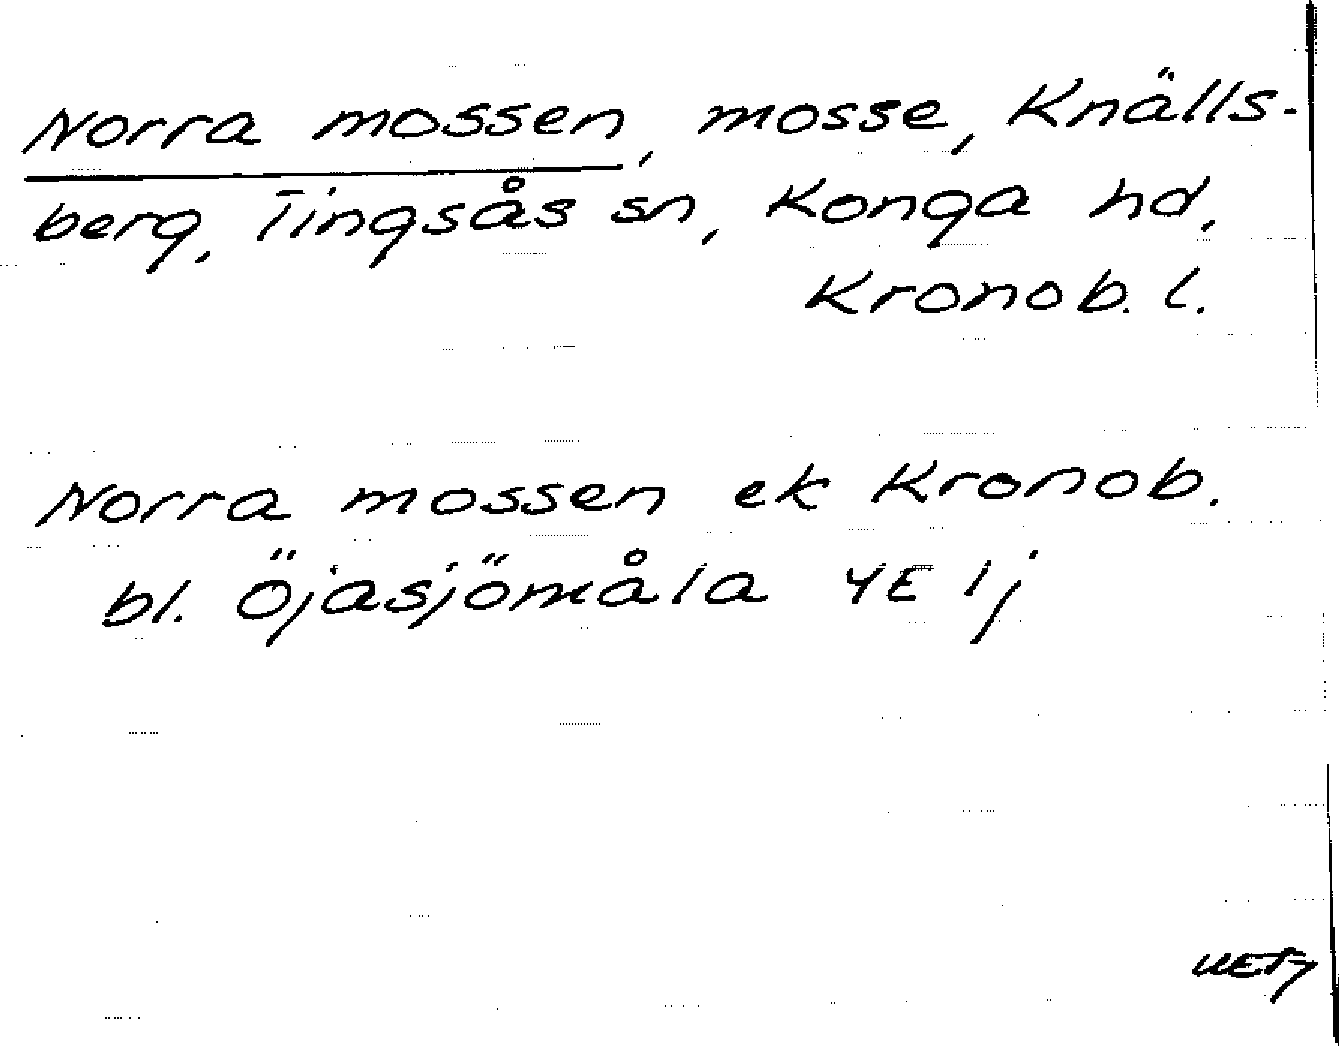 Norra mossen, mosse, Knälls-
berg, Tingsås sn, Konga hd,
Kronob. l.
Norra mossen ek Kronob.
bl. Öjasjömåla 4E 1j